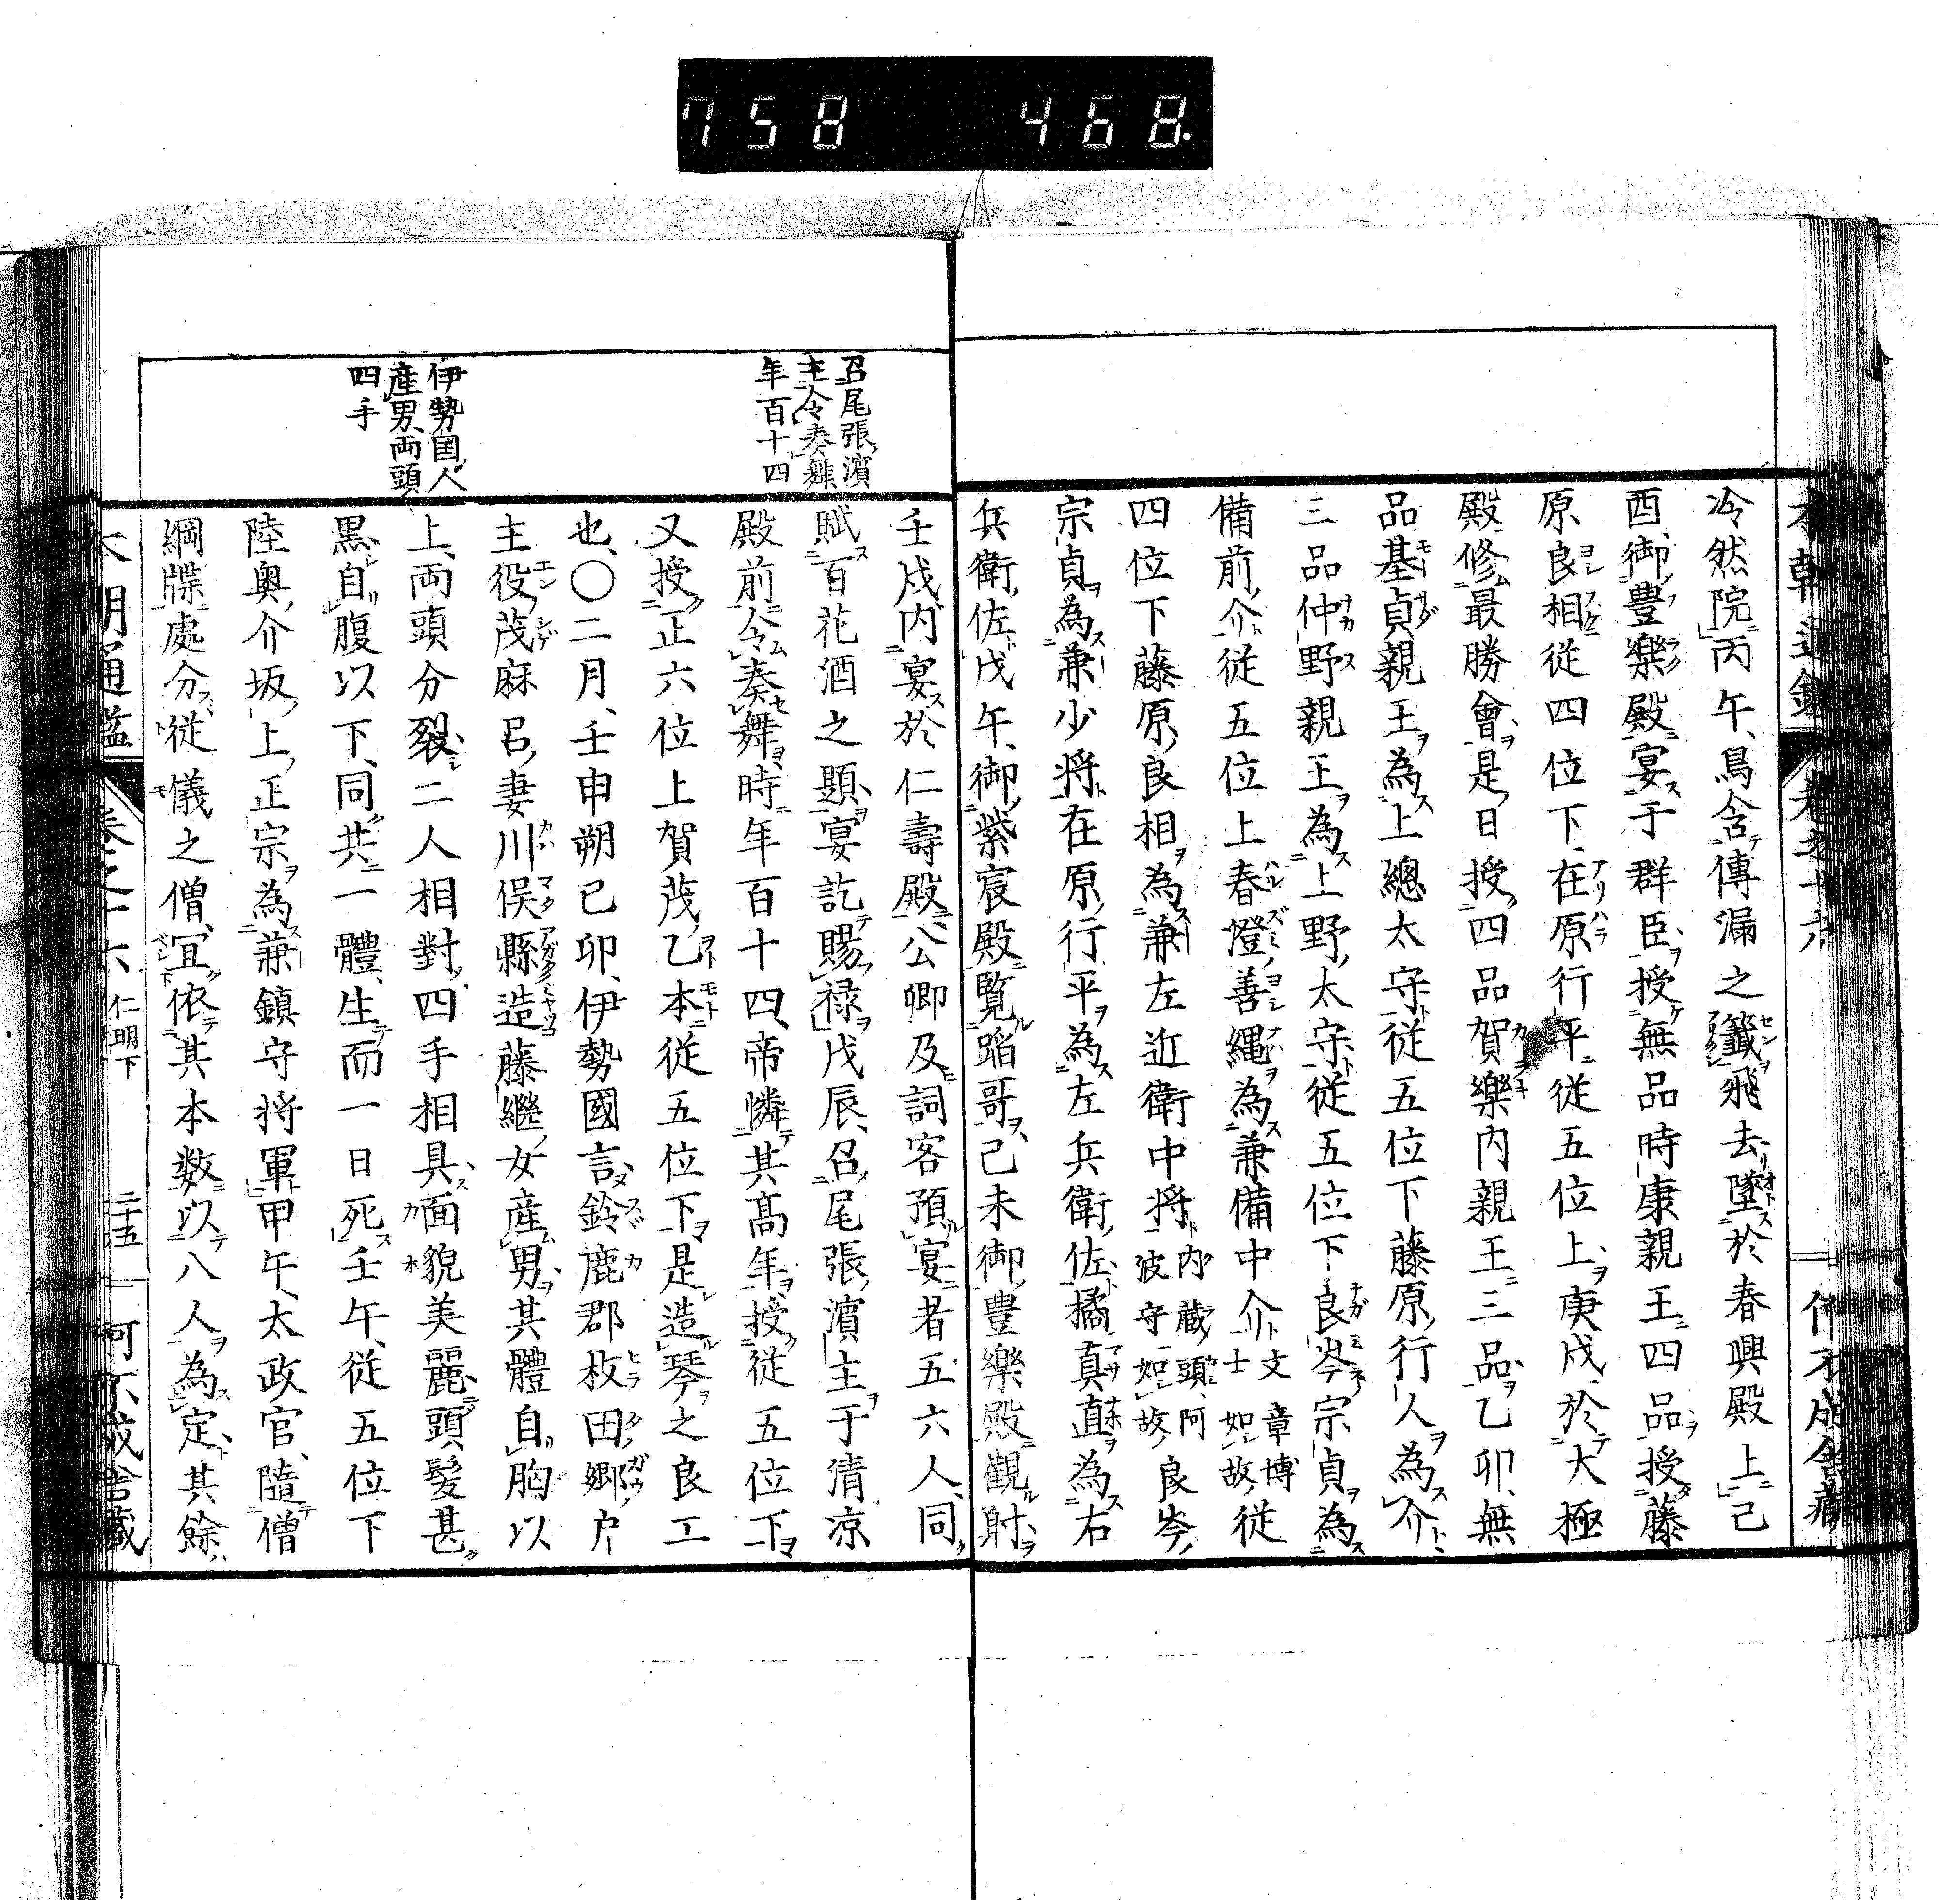 758 468.
冷然院丙午、鳥含傳漏之籤飛去墜於春興殿上己
酉、御豐樂殿宴于群臣授無品時康親王四品授藤
原良相從四位下、在原行平從五位上、庚戌、於大極
殿修最勝會是日授四品賀樂内親王三品乙卯、無
品基貞親王為上總太守從五位下藤原行人為介、
三品仲野親王為上野太守從五位下良岑宗貞為
備前介從五位上春澄善繩為兼備中介文章博士如故、從
四位下藤原良相為兼左近衛中將内藏頭、阿波守如故、良岑
宗貞為兼少将在原行平為左兵衛佐橘真直為右
兵衛佐戊午、御紫宸殿覧蹈哥、己未御豐樂殿觀射、
召尾張濱
主令奏舞
年百十四
伊勢国人
産男両頭
四手
壬戌、内宴於仁壽殿公卿及詞客預宴者五六人、同
賦百花酒之題、宴訖賜禄戊辰、召尾張濱主于清凉
殿前令奏舞、時年百十四、帝憐其髙年授從五位下
又授正六位上賀茂乙本從五位下是造琴之良工
也、〇二月、壬申朔己卯、伊勢國言、鈴鹿郡枚田郷戸
主役茂麻呂妻川俣縣造藤繼女産男、其體自胸以
上、両頭分裂二人相對、四手相具、面貌美麗頭髮甚
黒、自腹以下、同共一體、生而一日死壬午、從五位下
陸奥介坂上正宗為兼鎮守将軍甲午、太政官、隨僧
綱牒處分、從儀之僧、宜依其本数以八人為定、其餘
卷之十六 仁明下 二十五